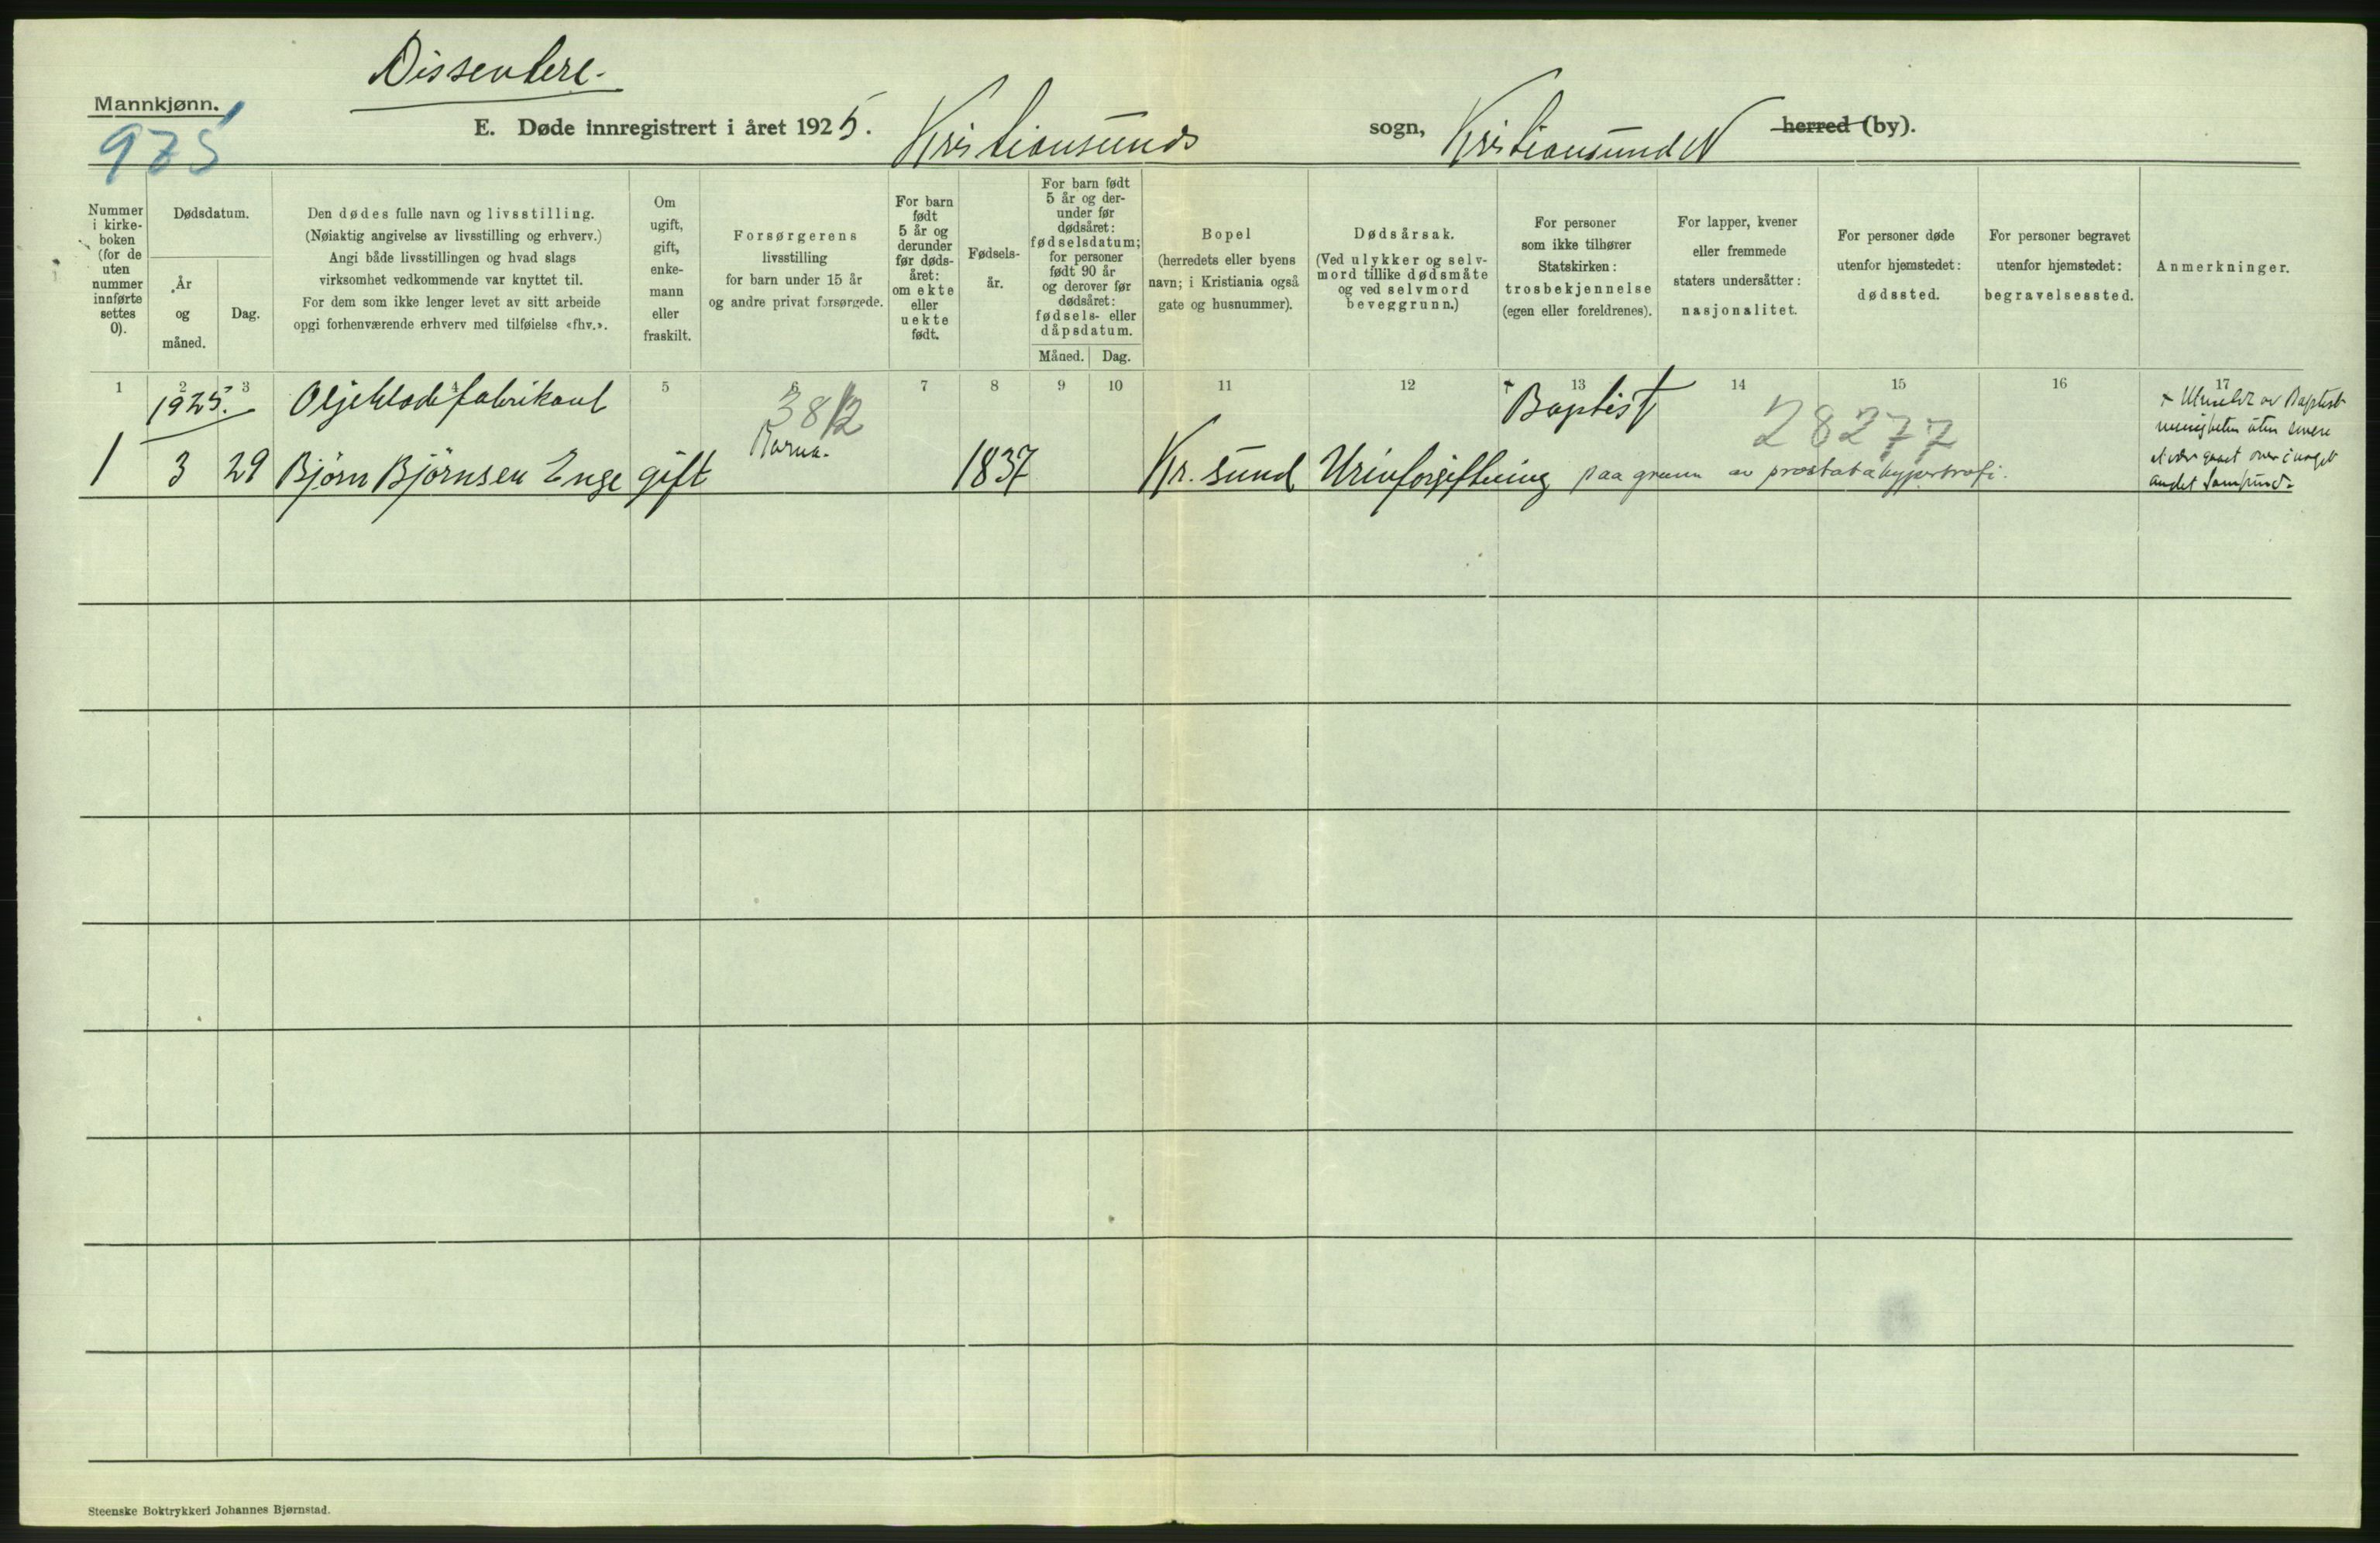 Dissentere.
Mannkjønn.
975
E. Døde innregistrert i året 1925. Kristiansunds sogn, Kristiansund N herred (by).
Nummer
i kirke-
boken
(for de
uten
nummer
innførte
settes
0).
Dødsdatum.
År
og
måned.
Dag.
Den dødes fulle navn og livsstilling.
(Nøiaktig angivelse av livsstilling og erhverv.)
Angi både livsstillingen og hvad slags
virksomhet vedkommende var knyttet til.
For dem som ikke lenger levet av sitt arbeide
opgi forhenværende erhverv med tilføielse «fhv.».
Om
ugift,
gift,
enke-
mann
eller
fraskilt.
Forsørgerens
livsstilling
for barn under 15 år
og andre privat forsørgede.
For barn
født
5 år og
derunder
før døds-
året:
om ekte
eller
uekte
født.
Fødsels-
år.
For barn født
5 år og der-
under før
dødsåret:
fødselsdatum;
for personer
født 90 år
og derover før
dødsåret:
fødsels- eller
dåpsdatum.
Måned. Dag.
Bopel
(herredets eller byens
navn; i Kristiania også
gate og husnummer).
Dødsårsak.
(Ved ulykker og selv-
mord tillike dødsmåte
og ved selvmord
beveggrunn.)
For personer
som ikke tilhører
Statskirken:
trosbekjennelse
(egen eller foreldrenes).
For lapper, kvener
eller fremmede
staters undersåtter:
nasjonalitet.
For personer døde
utenfor hjemstedet:
dødssted.
For personer begravet
utenfor hjemstedet:
begravelsessted.
Anmerkninger.
1 2 3 4 5 6 7 8 9 10 11 12 13 14 15 16 17
1925. Oljeklædefabrikant 3812 Baptist 28277
1 3 29 Bjørn Björnsen Enge gift 1837 Kr.sund Urinforgiftning paa grunn av prostatahypertrofi.
× Utmeldt av Baptist
menigheten uten senere
at være gaaet over i noget
andet Samfund.
Steenske Boktrykkeri Johannes Bjørnstad.